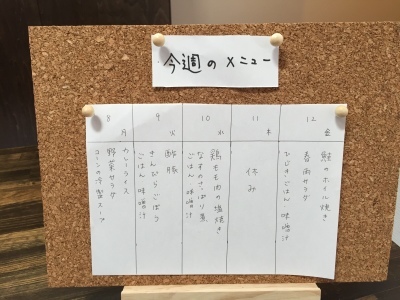 今週のメニュー
8 月
カレーライス
野菜サラダ
コーンの冷製スープ
9 火
酢豚
きんぴらごぼう
ごはん 味噌汁
10 水
鶏もも肉の塩焼き
なすのさっぱり煮
ごはん 味噌汁
11 木
休み
12 金
鮭のホイル焼き
春雨サラダ
ひじきごはん 味噌汁